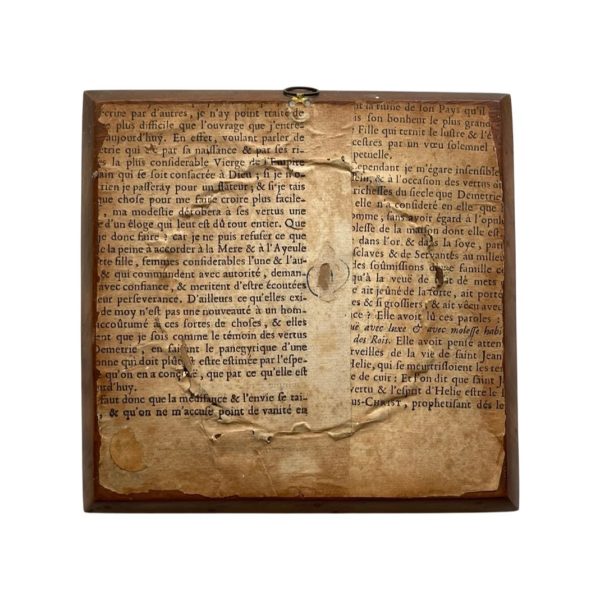 crite par d'autres, je n'ay point traité de
plus difficile que l'ouvrage que j'entre-
aujourd'huy. En effet, voulant parler de
metrie qui par sa naissance & par ses ri-
la plus considerable Vierge de l'Empire
ain qui se soit consacrée à Dieu ; si je n'o-
rien je passeray pour un flateur ; & si je tais
que chose pour me faire croire plus facile-
, ma modestie dérobera à ses vertus une
d'un éloge qui leur est dû tout entier. Que
je donc faire ; car je ne puis refuser ce que
de la peine à accorder à la Mere & à l'Ayeule
tte fille, femmes considerables l'une & l'au-
& qui commandent avec autorité, deman-
avec confiance, & meritent d'estre écoutées
eur perseverance. D'ailleurs ce qu'elles exi-
de moy n'est pas une nouveauté à un hom-
accoûtumé à ces sortes de choses, & elles
ent que je sois comme le témoin des vertus
Demetrie, en faisant le panegyrique d'une
onne qui doit plus estre estimée par l'espe-
qu'on en a conçuë, que par ce qu'elle est
urd'huy.
faut donc que la médisance & l'envie se tai-
, & qu'on ne m'accuse point de vanité en
la ruine de son Pays qu'il
is son bonheur le plus grand
Fille qui ternit le lustre & l'é
cestres par un vœu solemnel
petuelle.
ependant je m'égare insensible
lein, & à l'occasion des vertus
richesses du siecle que Demetrie
elle n'a consideré en elle que
omme, sans avoir égard à l'opul
blesse de la maison dont elle est
dans l'or, & dans la soye, par
sclaves & de Servantes au milieu
des soûmissions que famille
qu'à la veuë de de mets
e ait jeûné de la sorte, ait porté
es & si grossiers, & ait vécu avec
ce ? Elle avoit lû ces paroles :
uë avec luxe & avec molesse habi
des Rois. Elle avoit pensé attent
erveilles de la vie de saint Jean
Helie, qui se meurtrissoient les
e de cuir : Et l'on dit que saint J
vertu & l'esprit d'Helie estre le
us-CHRIST, prophetisant dés le